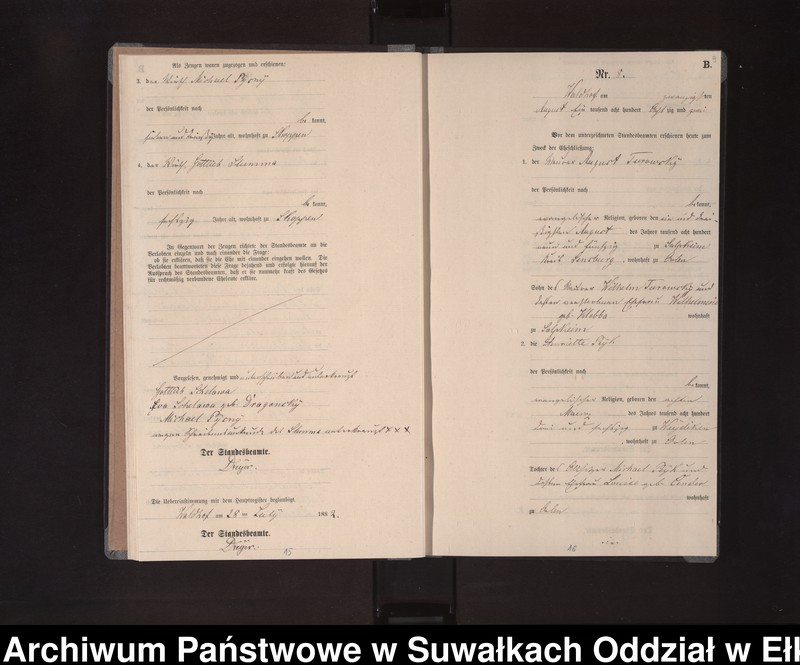 Als Zeugen waren zugezogen und erschienen:
3. der Wirth Michael Pyony
der Persönlichkeit nach
be kannt,
Jahre alt, wohnhaft zu Skoppen
4. der Wirth, Gottlieb Stumme
der Persönlichkeit nach
be kannt,
fünfzig Jahre alt, wohnhaft zu Skoppen
In Gegenwart der Zeugen richtete der Standesbeamte an die
Verlobten einzeln und nach einander die Frage:
ob sie erklären, daß sie die Ehe mit einander eingehen wollen. Die
Verlobten beantworteten diese Frage bejahend und erfolgte hierauf der
Ausspruch des Standesbeamten, daß er sie nunmehr kraft des Gesetzes
für rechtmäßig verbundene Eheleute erkläre.
Vorgelesen, genehmigt und unterschrieben und unterkreuzt
Gottlieb
Eva geb Dragonsky
Michael Pyony
wegen des Stumme unterkreuzt X X X
Der Standesbeamte.
Dreyer.
Die Uebereinstimmung mit dem Hauptregister beglaubigt.
Waldhof am 28 ten July 188 2.
Der Standesbeamte.
Dreyer.
15
B.
Nr. 8.
Waldhof am zwanzigsten
August Ein tausend acht hundert acht zig und zwei
Vor dem unterzeichneten Standesbeamten erschienen heute zum
Zweck der Eheschließung:
1. der Maurer August Turowsky
der Persönlichkeit nach
be kannt,
evangelischer Religion, geboren den ein und drei-
ßigsten August des Jahres tausend acht hundert
neun und fünfzig zu Salpkeim
Kreis Sensburg, wohnhaft zu Orlen
Sohn des Maurer Wilhelm Turowsky und
dessen verstorbenen Ehefrau Wilhelmine
geb Klebba wohnhaft
zu Salpkeim
2. die Henriette Pyk
der Persönlichkeit nach
be kannt,
evangelischer Religion, geboren den achten
des Jahres tausend acht hundert
drei und sechszig zu
, wohnhaft zu Orlen
Tochter des Michael Pyk und
dessen Ehefrau Louise geb
wohnhaft
zu Orlen
16
Archiwum Państwowe w Suwałkach Oddział w Ełk